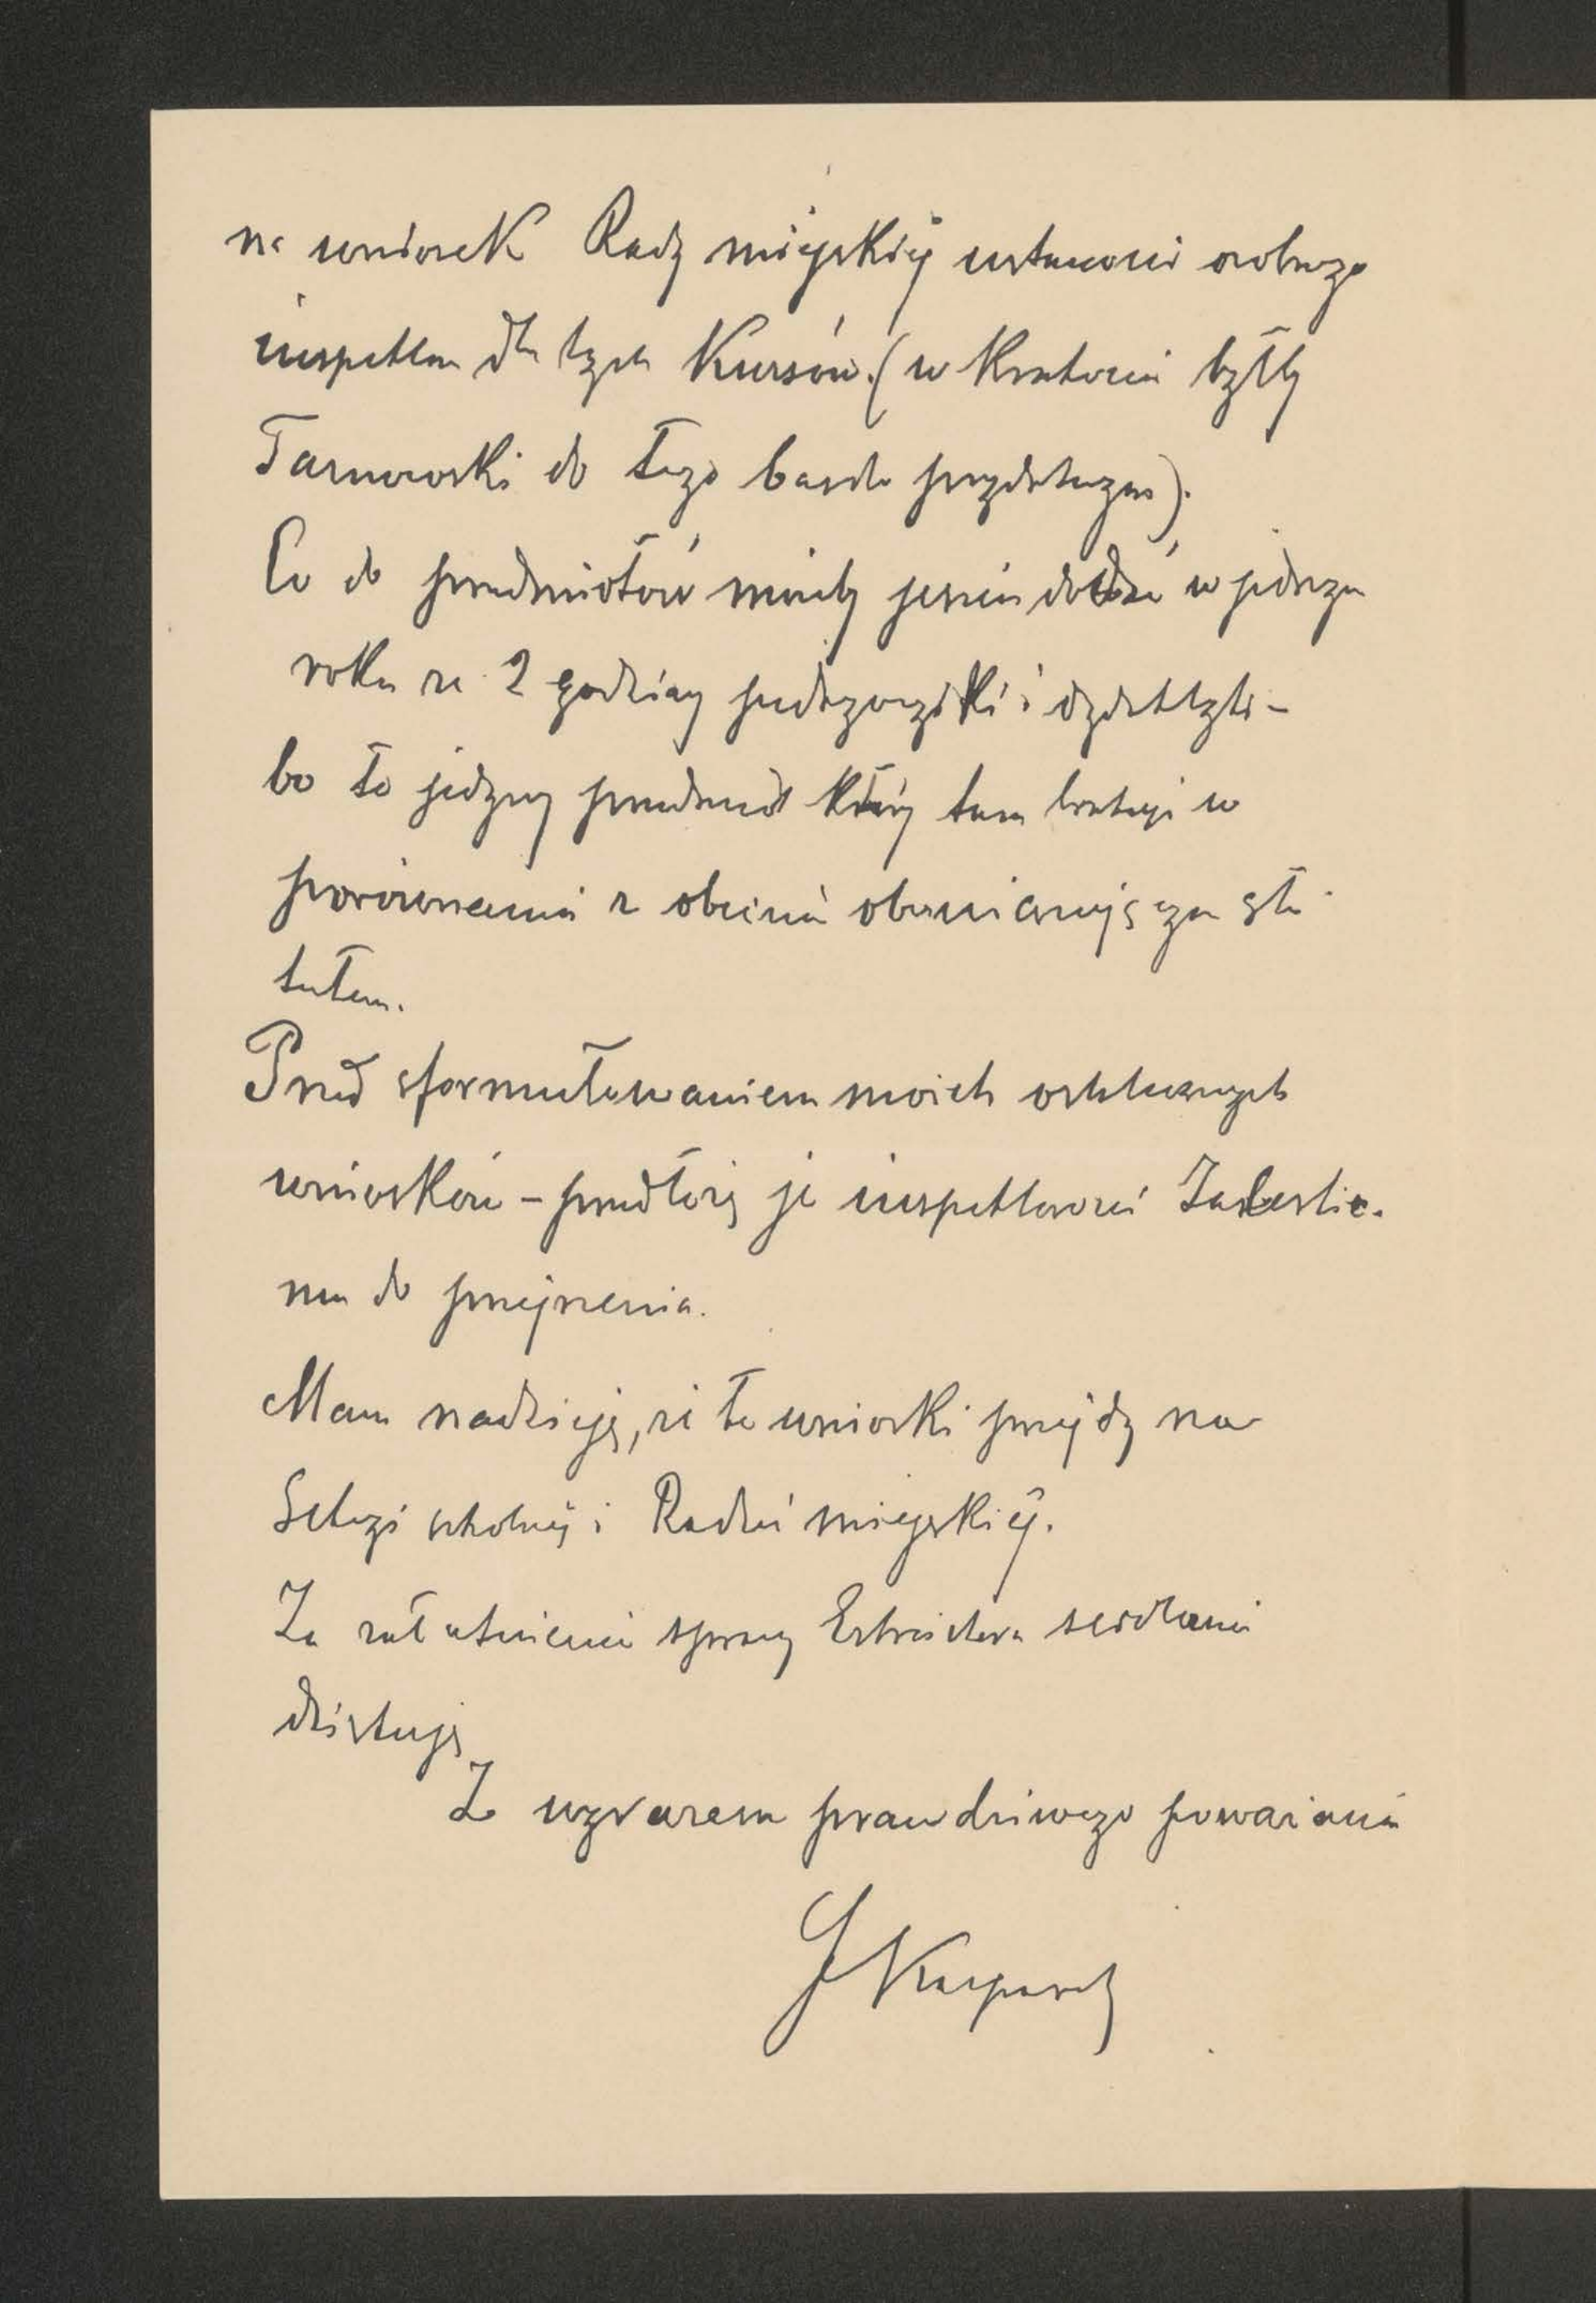 na wniosek Rady miejskiej ustanowi osobnego
inspektora dla tych Kursów. (w Krakowie byłby
Tarnowski do tego bardo przydatnym).
Co do przedmiotów miałby jeszcze dodać w jednym
roku ze 2 godziny pedagogiki i dydaktyki –
bo to jedyny przedmiot który tam brakuje w
porównaniu z obecnie obowiązującym sta
tutem.
Przed sformułowaniem moich ostatecznych
wniosków – przedłożę je inspektorowi
mu do przejrzenia.
Mam nadzieję, że te wnioski przejdą na
Sekcyi szkolnej i Radzie miejskiej.
Za załatwienie sprawy Estreichera serdecznie
dziękuję
Z wyrazem prawdziwego poważania